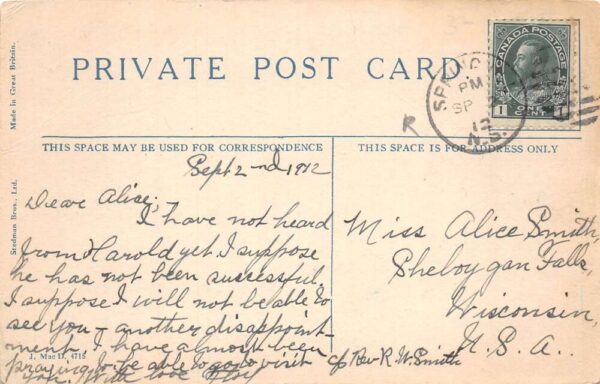 PRIVATE POST CARD
CANADA POSTAGE
1 ONE CENT 1
PM
SP
12
N.S.
R
Made in Great Britain.
Stedman Bros., Ltd.
THIS SPACE MAY BE USED FOR CORRESPONDENCE
THIS SPACE IS FOR ADDRESS ONLY
Sept 2nd 1912
Dear Alice;
I have not heard
from Harold yet. I suppose
he has not been successful.
I suppose I will not be able to
see you - another disappoint-
ment. I have almost been
praying to be able to go to visit
you. With love
J. Mac D. 4715
Miss Alice Smith,
Sheboygan Falls,
Wisconsin,
U.S.A.
c/o Rev. R. W. Smith